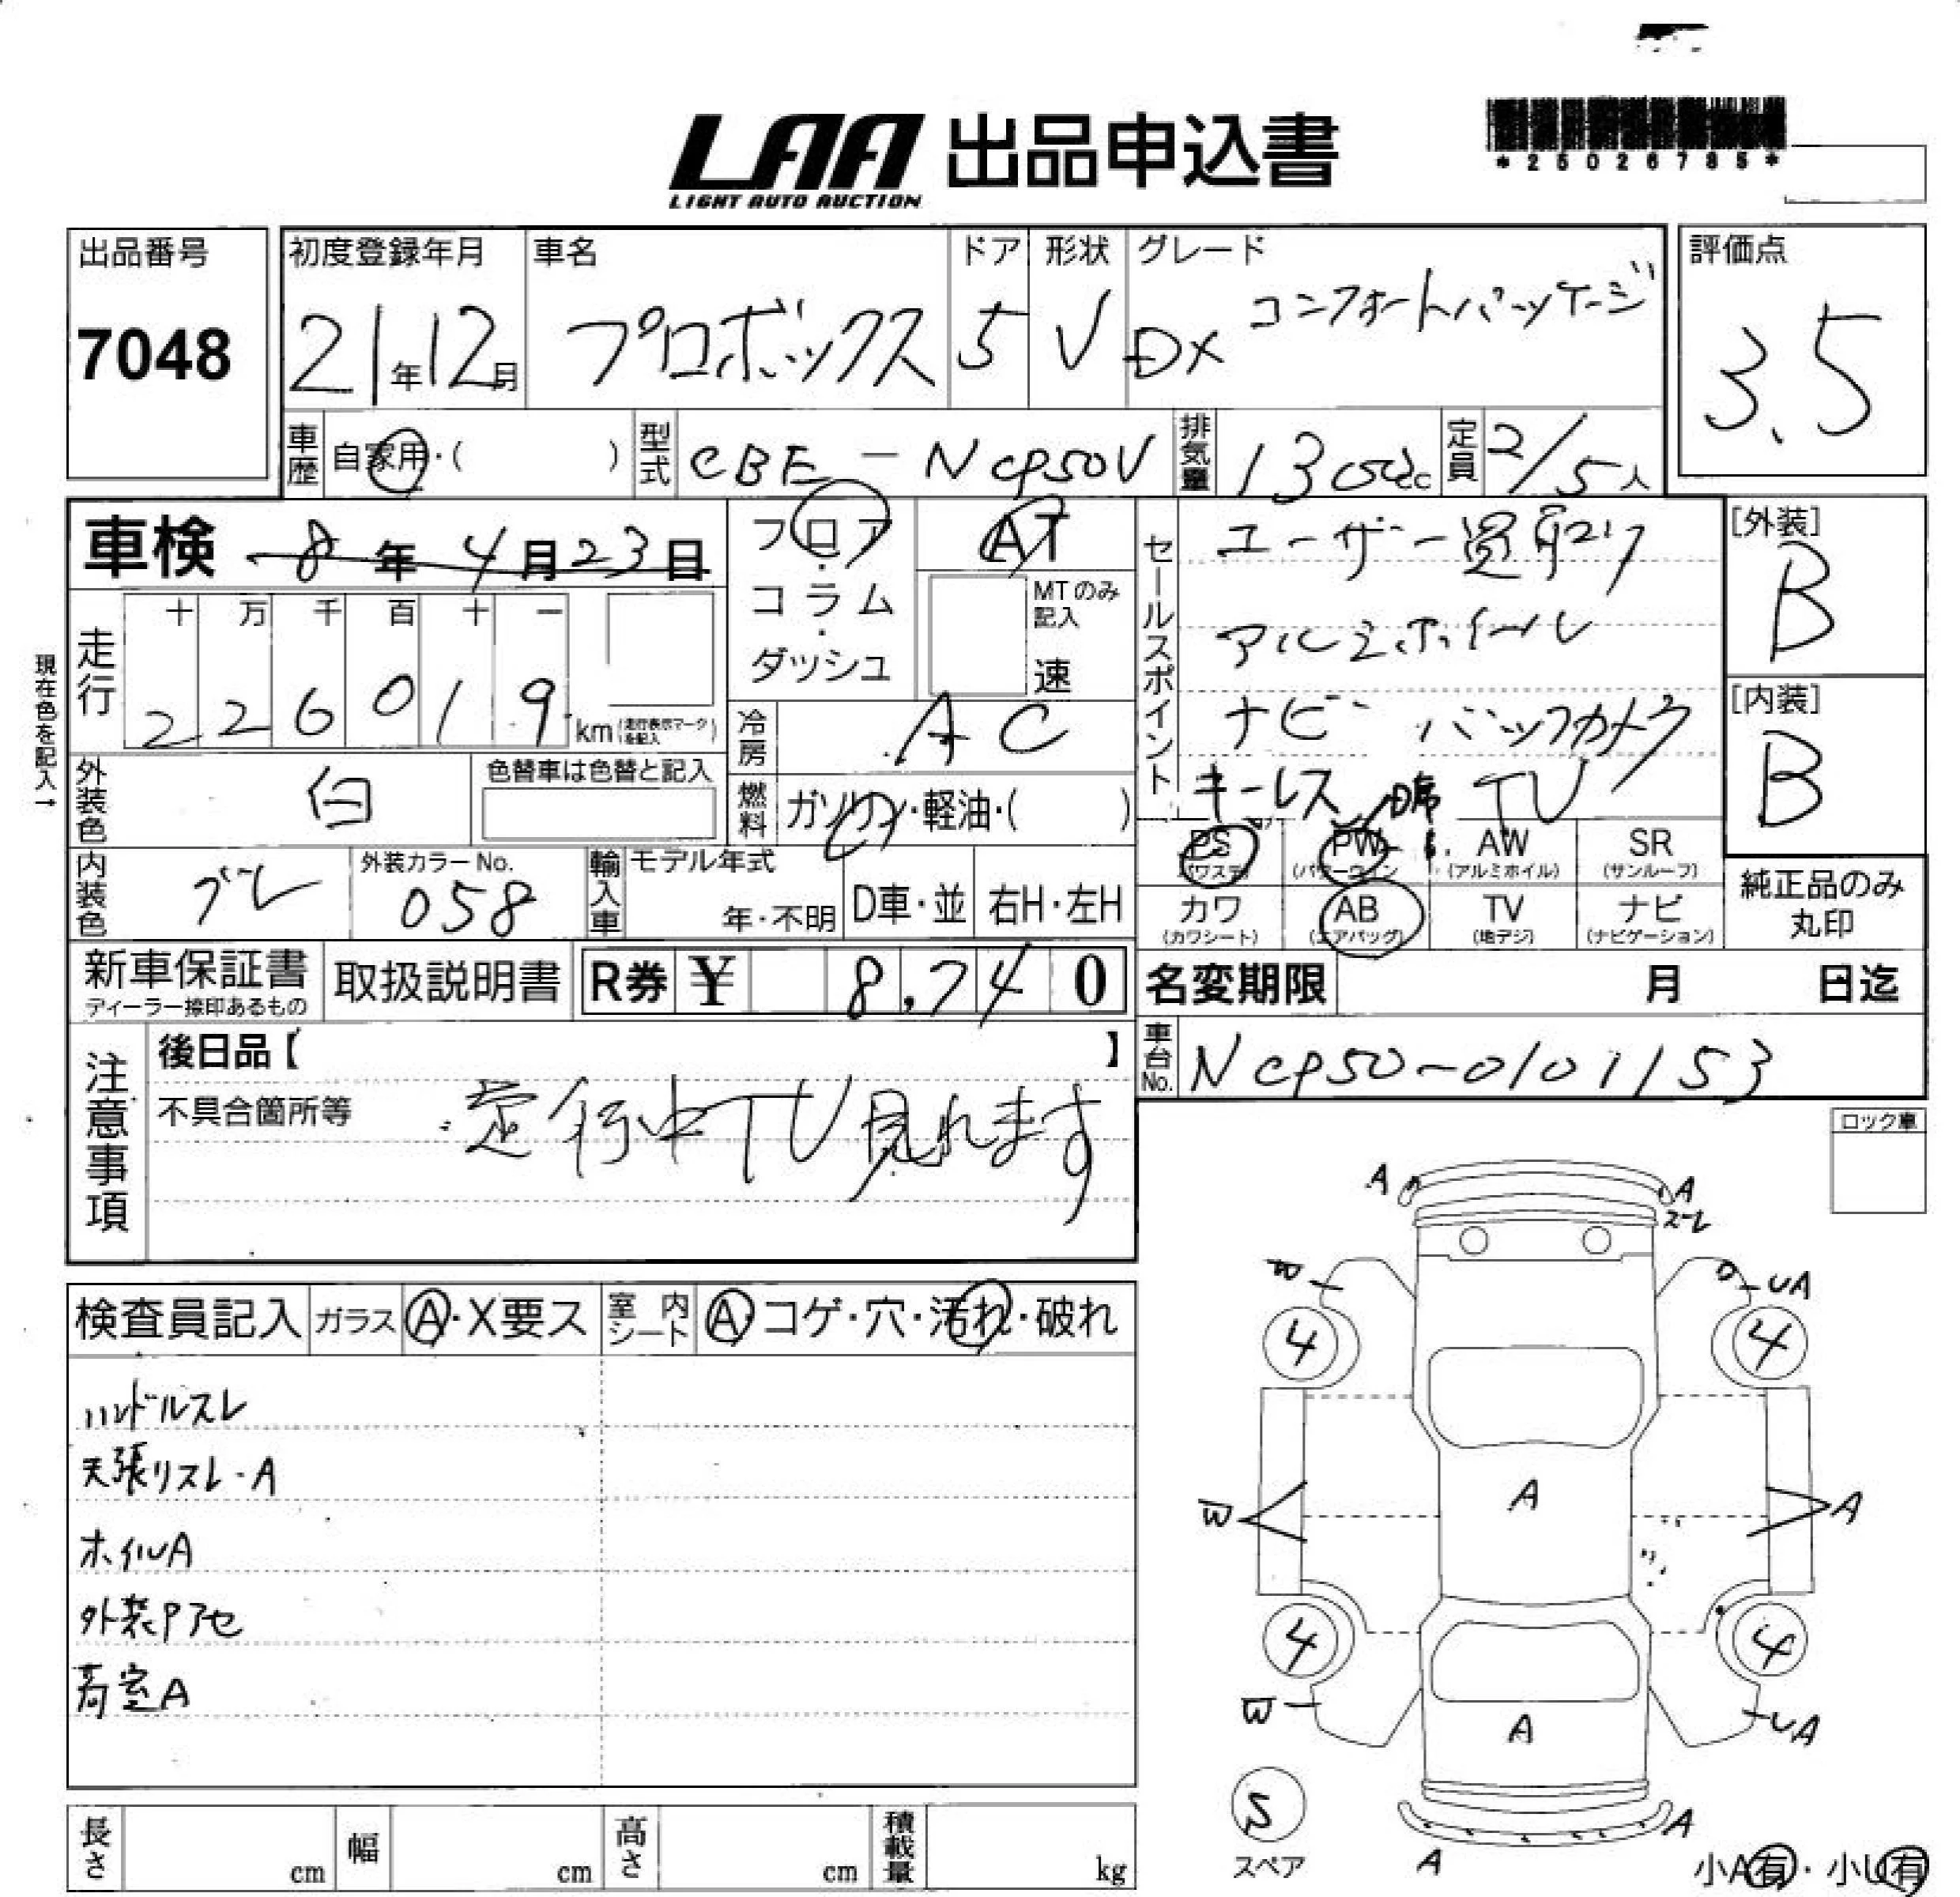 LAA 出品申込書
LIGHT AUTO AUCTION
*25026785*
出品番号 初度登録年月 車名 ドア 形状 グレード 評価点
7048 21年12月 プロボックス 5 V DX コンフォートパッケージ 3.5
車歴 自家用・( ) 型式 CBE-NCP50V 排気量 1300cc 定員 2/5人
車検 8年4月23日
フロア・コラム・ダッシュ
AT
MTのみ記入
速
セールスポイント
ユーザー買取り
アルミホイール
ナビ バックカメラ
キーレス TV
[外装]
B
[内装]
B
現在色を記入→
走行 十 万 千 百 十 一
226019 km (走行表示マークを記入)
冷房 AC
外装色 白 色替車は色替と記入
燃料 ガソリン・軽油・( )
PS (パワステ) PW (パワーウィン AW (アルミホイル) SR (サンルーフ)
カワ (カワシート) AB (エアバッグ) TV (地デジ) ナビ (ナビゲーション)
純正品のみ丸印
内装色 グレ 外装カラーNo. 058 輸入車 モデル年式 年・不明 D車・並 右H・左H
新車保証書 ディーラー捺印あるもの 取扱説明書 R券 ¥ 8,740
名変期限 月 日迄
車台No. NCP50-0101153
注意事項
後日品【 】
不具合箇所等 走行中TV見れます
ロック車
検査員記入 ガラス A・X要ス 室内シート A・コゲ・穴・汚れ・破れ
ハンドルスレ
天張リスレ・A
ホイルA
外装Pアセ
荷室A
A A
ズレ
W UA
4 4
W A A
4 4
W A UA
S
スペア
A A
小A有・小U有
長さ cm 幅 cm 高さ cm 積載量 kg